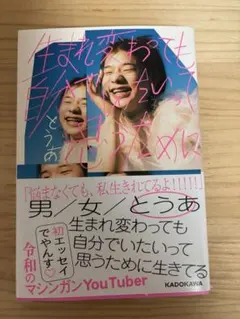 生まれ変わっても
自分でいたいって
思うために
とうあ
「悩まなくても、私生きれてるよ!!!!!」
男/女/とうあ
初エッセイでやんす♡
生まれ変わっても
自分でいたいって
思うために生きてる
令和のマシンガンYouTuber
KADOKAWA